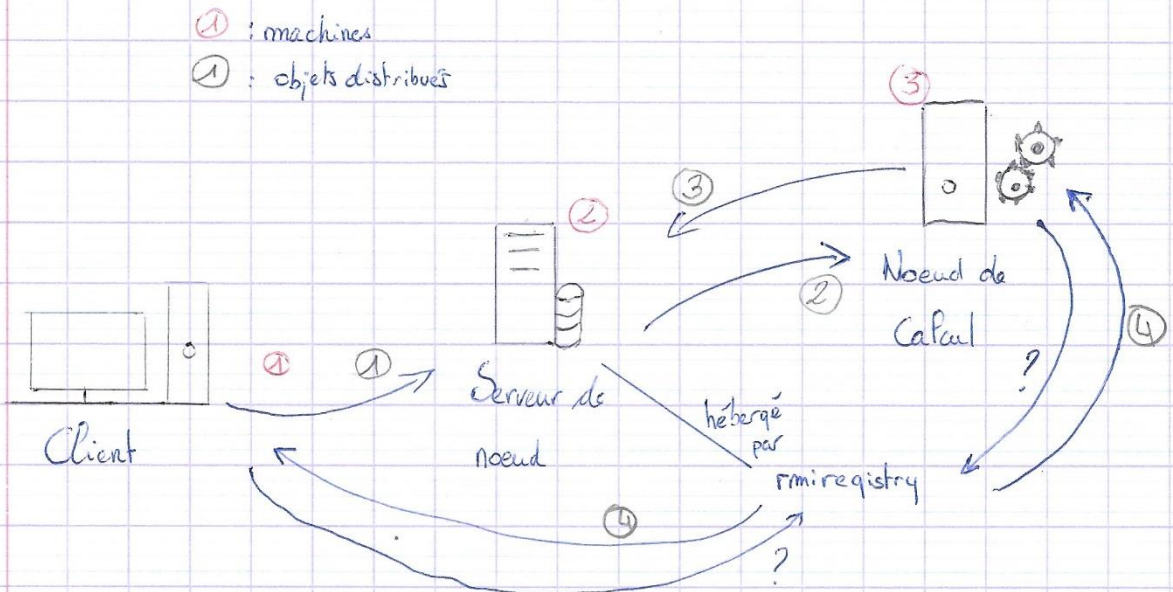 ① : machines
① : objets distribués
③
③
②
②
Noeud de
Calcul
④
?
①
①
Serveur de
noeud
hébergé
par
rmiregistry
Client
④
?